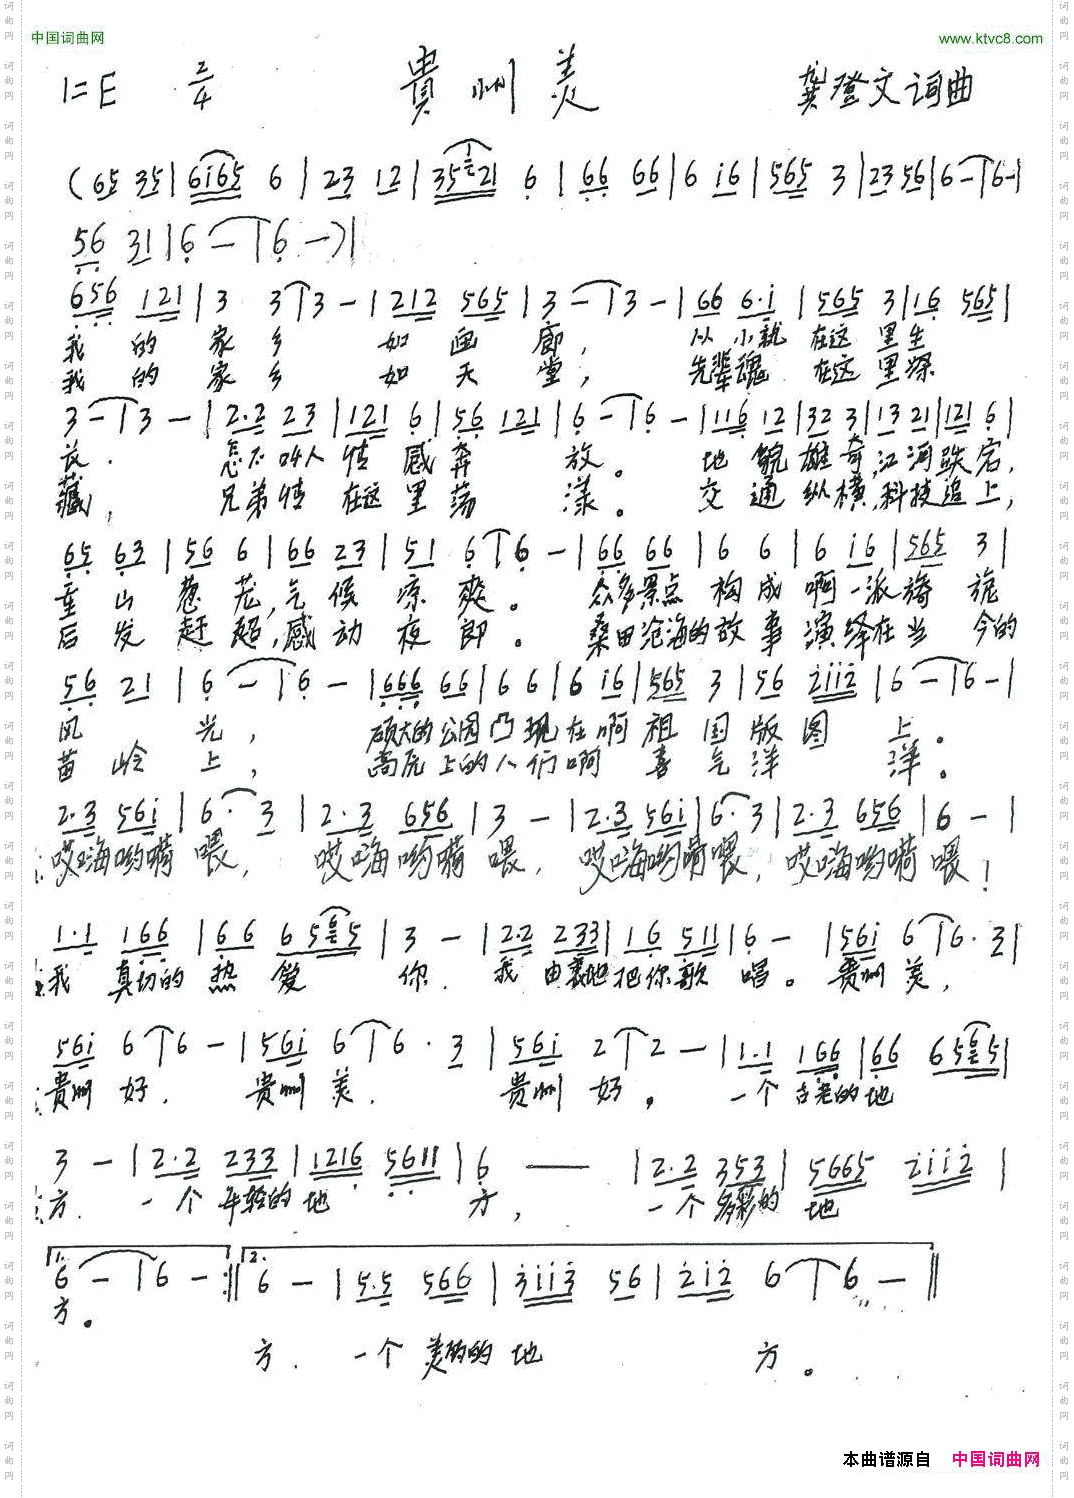 中国词曲网 www.ktvc8.com
1=E 2/4 貴州美 龚澄文词曲
(65 35|6i65 6|23 12|35 21 6|66 66|6 i6|565 3|23 56|6-|6-|
56 31|6-|6-)|
656 121|3 3|3-|212 565|3-|3-|66 6·i|565 3|16 565|
我的家乡如画廊,从小就在这里生
我的家乡如天堂,先辈魂在这里深
3-|3-|2·2 23|121 6|56 121|6-|6-|116 12|32 3|13 21|121 6|
长.怎不叫人情感奔放。地貌雄奇,江河跌宕,
藏,兄弟情在这里荡漾。交通纵横,科技追上,
65 63|56 6|66 23|51 6|6-|66 66|6 6|6 i6|565 3|
童山葱茏,气候凉爽。众多景点构成啊一派旖旎
后发赶超,感动夜郎。桑田沧海的故事演绎在当今的
56 21|6-|6-|666 66|6 6|6 i6|565 3|56 2ii2|6-|6-|
风光,硕大的公园凸现在啊祖国版图上。
苗岭上,高原上的人们啊喜气洋洋。
2·3 56i|6·3|2·3 656|3-|2·3 56i|6·3|2·3 656|6-|
哎嗨哟嗬喂,哎嗨哟嗬喂,哎嗨哟嗬喂,哎嗨哟嗬喂!
1·1 166|66 6565|3-|2·2 233|16 511|6-|56i 6|6·3|
我真切的热爱你.我由衷地把你歌唱。贵州美,
56i 6|6-|56i 6|6·3|56i 2|2-|1·1 166|66 6565|
贵州好.贵州美.贵州好。一个古老的地
3-|2·2 233|1216 5611|6——|2·2 353|5665 2ii2|
方.一个年轻的地方,一个多彩的地
1. 6-|6-:|2. 6-|5·5 566|3ii3 56|2i2 6|6-||
方。
方.一个美丽的地方。
本曲谱源自 中国词曲网